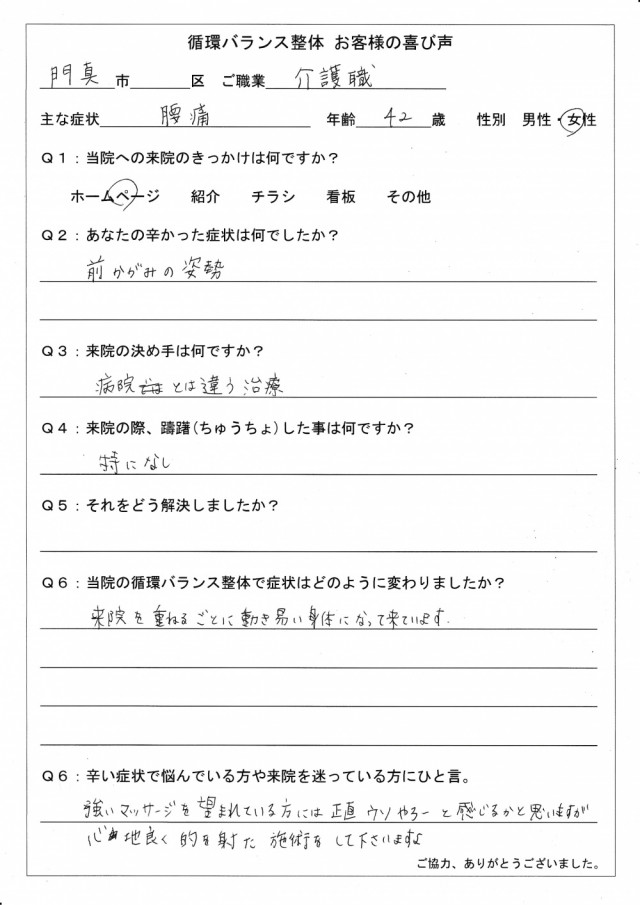 循環バランス整体 お客様の喜び声
門真 市 区 ご職業 介護職
主な症状 腰痛 年齢 42 歳 性別 男性・女性
Q1：当院への来院のきっかけは何ですか？
ホームページ 紹介 チラシ 看板 その他
Q2：あなたの辛かった症状は何でしたか？
前かがみの姿勢
Q3：来院の決め手は何ですか？
病院とは違う治療
Q4：来院の際、躊躇(ちゅうちょ)した事は何ですか？
特になし
Q5：それをどう解決しましたか？
Q6：当院の循環バランス整体で症状はどのように変わりましたか？
来院を重ねるごとに動き易い身体になって来ています.
Q6：辛い症状で悩んでいる方や来院を迷っている方にひと言。
強いマッサージを望まれている方には正直ウソやろーと感じるかと思いますが
心地良く的を射た施術をして下さいますよ
ご協力、ありがとうございました。